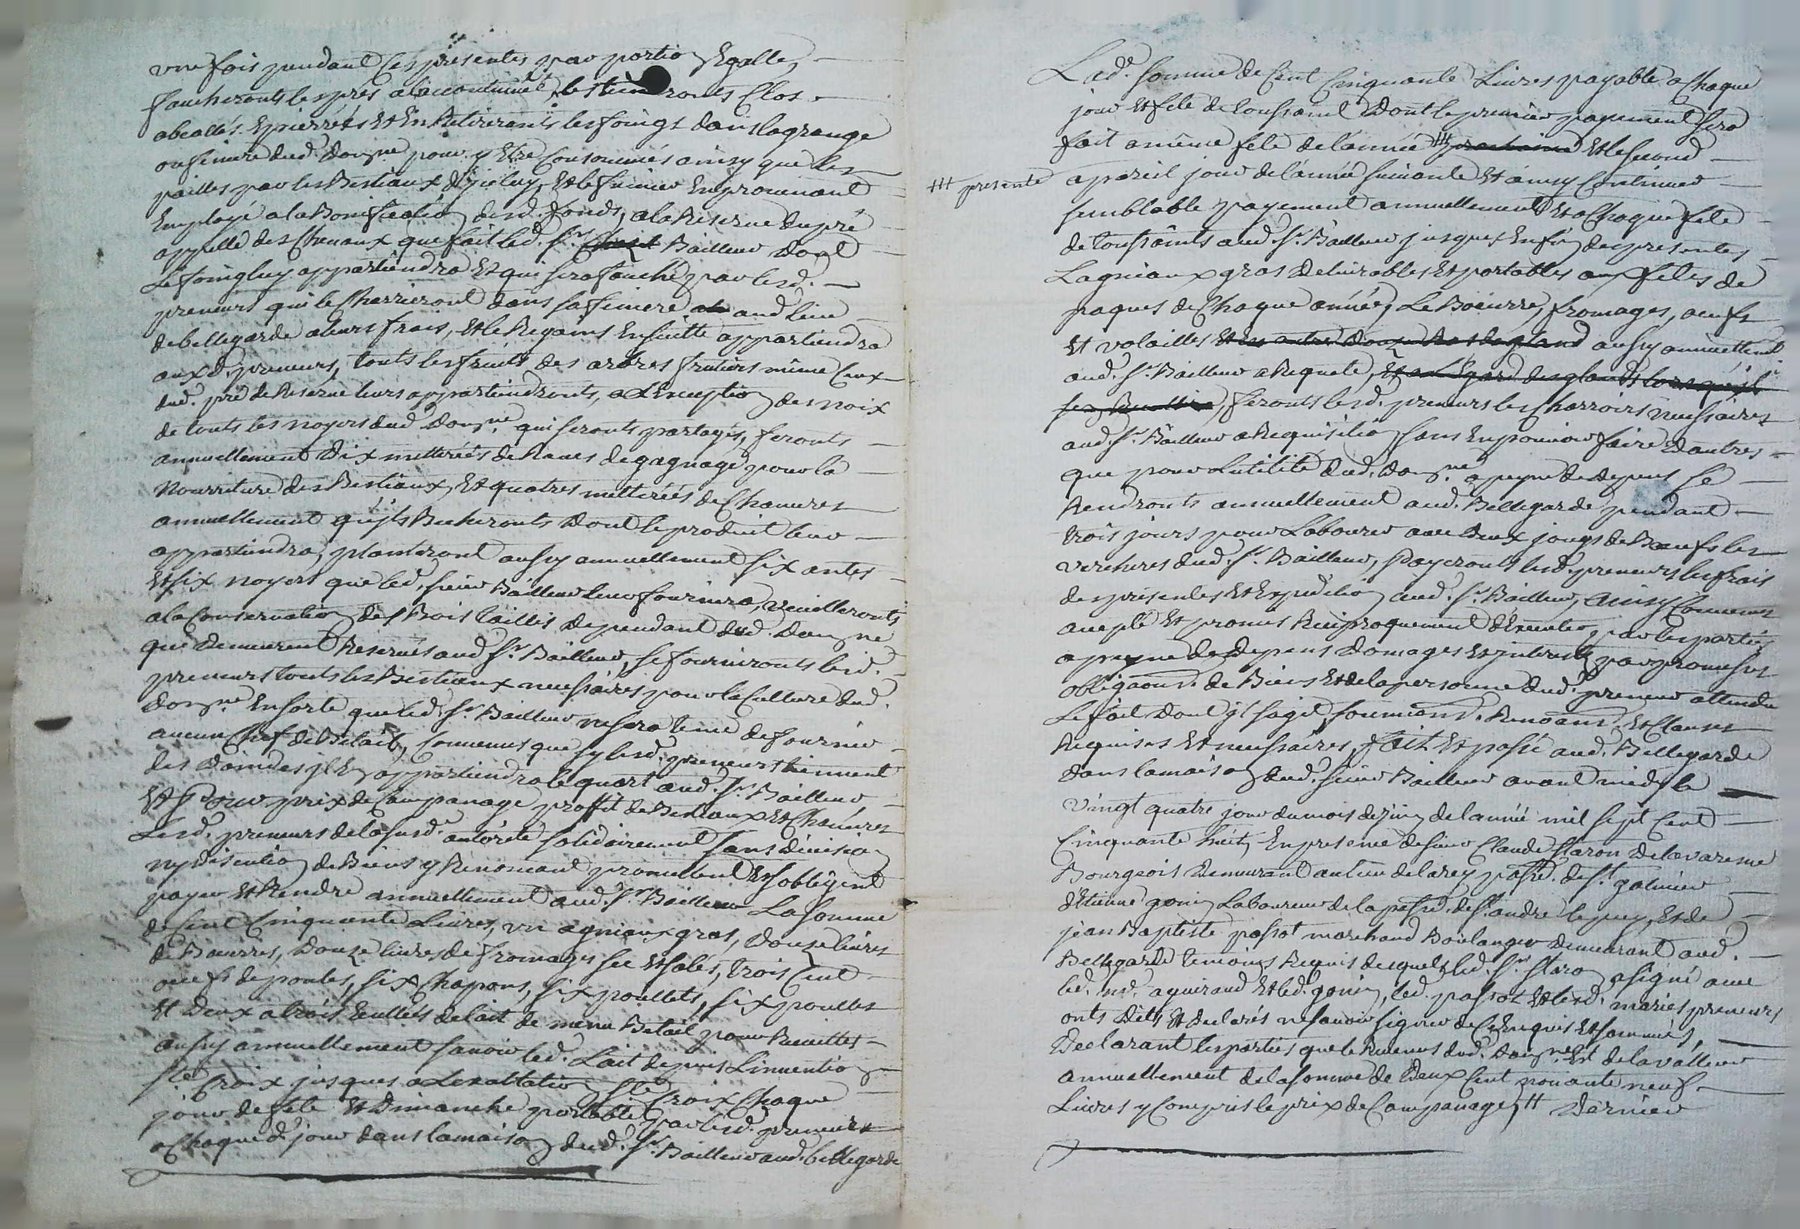 une fois pendant ces présentes par portion Egalle,
faucheronts les prés a laccoutumée, les tiendronts Clos
abeallés Epierrés Et En Retireronts les foings dans la grange
ou feniere dud. domne pour y Etre Consommés ainsy que les
pailles par les Bestiaux d'yceluy, Et le fumier En provenant
Employé a la Bonification desd. fonds, a la Reserve du pré
appellé des Chevaux que fait led. Sr Bailleur dont
Le foing luy appartiendra Et que sera fauché par lesd.
preneurs qui le Charrieront dans sa feniere aud. lieu
de bellegarde a leurs frais, Et le Regains Ensuitte appartiendra
auxd. preneurs, touts les fruits des arbres fruitiers même Ceux
dud. pré de Reserve leurs appartiendronts, a L'exception des noix
de touts les noyers dud. Domne qui seronts partagés, feronts
annuellement Dix metterées de Raves de gagnage pour la
Nourriture des Bestiaux, Et quatres metterées de Chanvres
annuellement qu'jls Becheronts Dont le produit leur
appartiendra, planteront aussy annuellement Six antes
Et six noyers que led. sieur Bailleur leur fournira, veilleronts
a la Conservation des Bois taillis Dependant dud. Domne
qui Demeurent Reservés aud. Sr Bailleur, se fourniront lesd.
preneurs touts les Bestiaux necessaires pour la Culture dud.
Domne En sorte que led. Sr Bailleur ne sera tenu de fournir
aucun Chef de Betail, Convenus que sy lesd. preneurs tiennent
des Daindes jl En appartiendra le quart aud. Sr Bailleur
Et Pour prix de Campanage proffit de Bestiaux Et Chanvres
Lesd. preneurs de la susd. autorité solidairement sans division
ny discution de Biens y Renoncant promettent Et s'obligent
payer Et Rendre annuellement aud. Sr Bailleur La somme
de Cent Cinquante Livres, un agniaux gras, Douze livres
de Beurres, Douze livres de fromages sec Et salés, trois Cent
oeufs de poules, six Chapons, six poullets, six poulles
Et Deux a trois Cuillets de lait de menu Betail pour Recuittes
aussy annuellement savoir led. Lait depuis L'invention
Ste Croix jusques a L'exaltation Ste Croix Chaque
jour de fête Et Dimanche portable par lesd. preneurs
a Chaque d. jour dans la maison dud. Sr Bailleur aud. bellegarde
Lad. somme de Cent Cinquante Livres payable a Chaque
jour Et fete de toussaint Dont le premier payement sera
fait a même fête de l'année prochaine Et le second
presente a pareil jour de l'année suivante Et ainsy Continuer
semblable payement annuellement Et a Chaque fete
de toussaints aud. Sr Bailleur jusques En fin des presentes
L'agniaux gras Delivrables Et portables aux fêtes de
paques de Chaque année, Le Boeurre, fromages, oeufs
Et volailles aussy annuellement
aud. Sr Bailleur a Requete,
feronts lesd. preneurs les Charrois necessaires
aud. Sr Bailleur a Requisition sans En pouvoir faire d'autres
que pour L'utilité dud. Domne a peyne de Depens Se
Rendronts annuellement aud. Bellegarde pendant
trois jours pour Labourer avec Deux jougs de Boeufs les
verchères dud. Sr Bailleur, Payeronts lesd. preneurs les frais
des presentes Et Expedition aud. Sr Bailleur, ainsy Convenus
accepté Et promis Reciproquement d'Executer, par les parties
a peyne de Depens Domages Et jnterests par promesses
obligaons. de Biens Et de la personne dud. preneur attendu
Le fait Dont jl sagit, soumions. Renoans. Et Clauses
Requises Et necessaires, fait Et passé aud. Bellegarde
dans la maison dud. sieur Bailleur avant midy le
vingt quatre jour du mois de juin de l'année mil sept Cent
Cinquante huit, En presence de sieur Claude Staron Delavaresne
Bourgeois Demeurant au lieu de larey parse. de St galmier
d'Etienne gonin Laboureur de la parse. de St andré le puy, Et de
jean Baptiste passot marchand Boulanger Demeurant aud.
Bellegarde temoins Requis desquels led. Sr Staron a signé avec
led. me. ayuerand Et led. gonin, led. passot Et lesd. mariés preneurs
onts Dits Et declarés ne savoir signer de Ce Enquis Et sommés,
Declarant les parties que le Revenus dud. Domne est de la valleur
annuellement de la somme de Deux Cent nonante neuf
Livres y Compris le prix de Campanage, Dernier